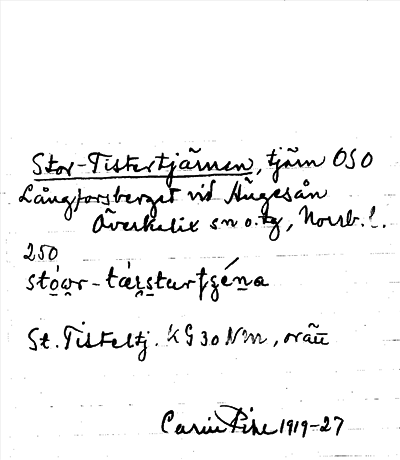 Stor-Tistertjärnen, tjärn OSO
Långforsberget vid Ängesån
Överkalix sn o. tg, Norrb. l.
250
St. Tisteltj. KG 30 NV, oräu
Carin Pihl 1919-27